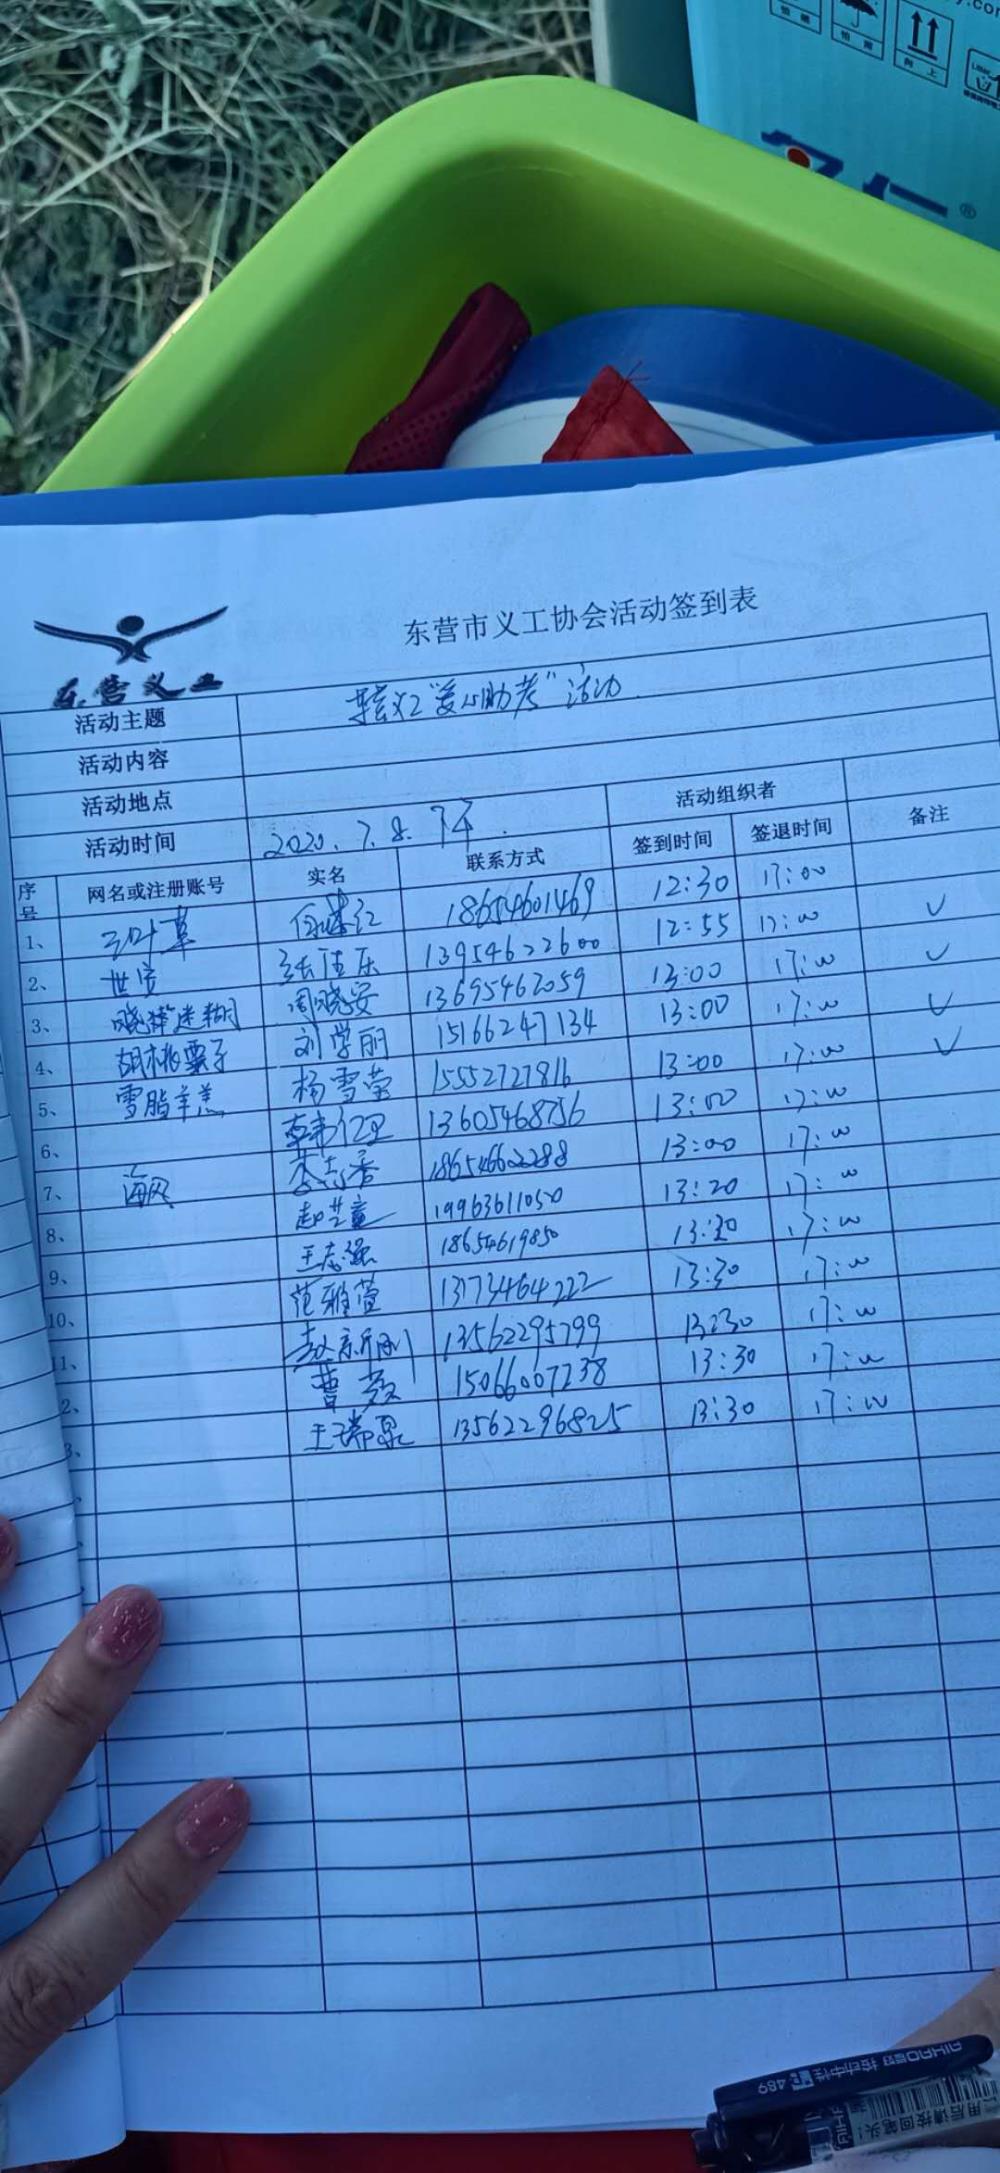 怕湿
向上
亿仁®
东营市义工协会活动签到表
东营义工
活动主题 义工"爱心助考"活动
活动内容
活动地点
活动时间 2020.7.8. 下午
活动组织者
序号 网名或注册账号 实名 联系方式 签到时间 签退时间 备注
1、 三叶草 18654601469 12:30 17:00
2、 世安 张佳乐 13954622600 12:55 17:00 ✓
3、 晓猪迷糊 周晓安 13695462059 13:00 17:00 ✓
4、 胡桃栗子 刘学丽 15166247134 13:00 17:00 ✓
5、 雪脂羊羔 杨雪莹 15552727816 13:00 17:00 ✓
6、 13605468756 13:00 17:00
7、 海风 李志香 18654662288 13:00 17:00
8、 赵芷童 19963611050 13:20 17:00
9、 王志强 18654619850 13:30 17:00
10、 范雅萱 13773464222 13:30 17:00
11、 赵新刚 13562295799 13:30 17:00
2、 曹 15066007238 13:30 17:00
3、 王瑞泉 13562296825 13:30 17:00
AIHAO 爱好 按动中性 489
用后请按回笔头!